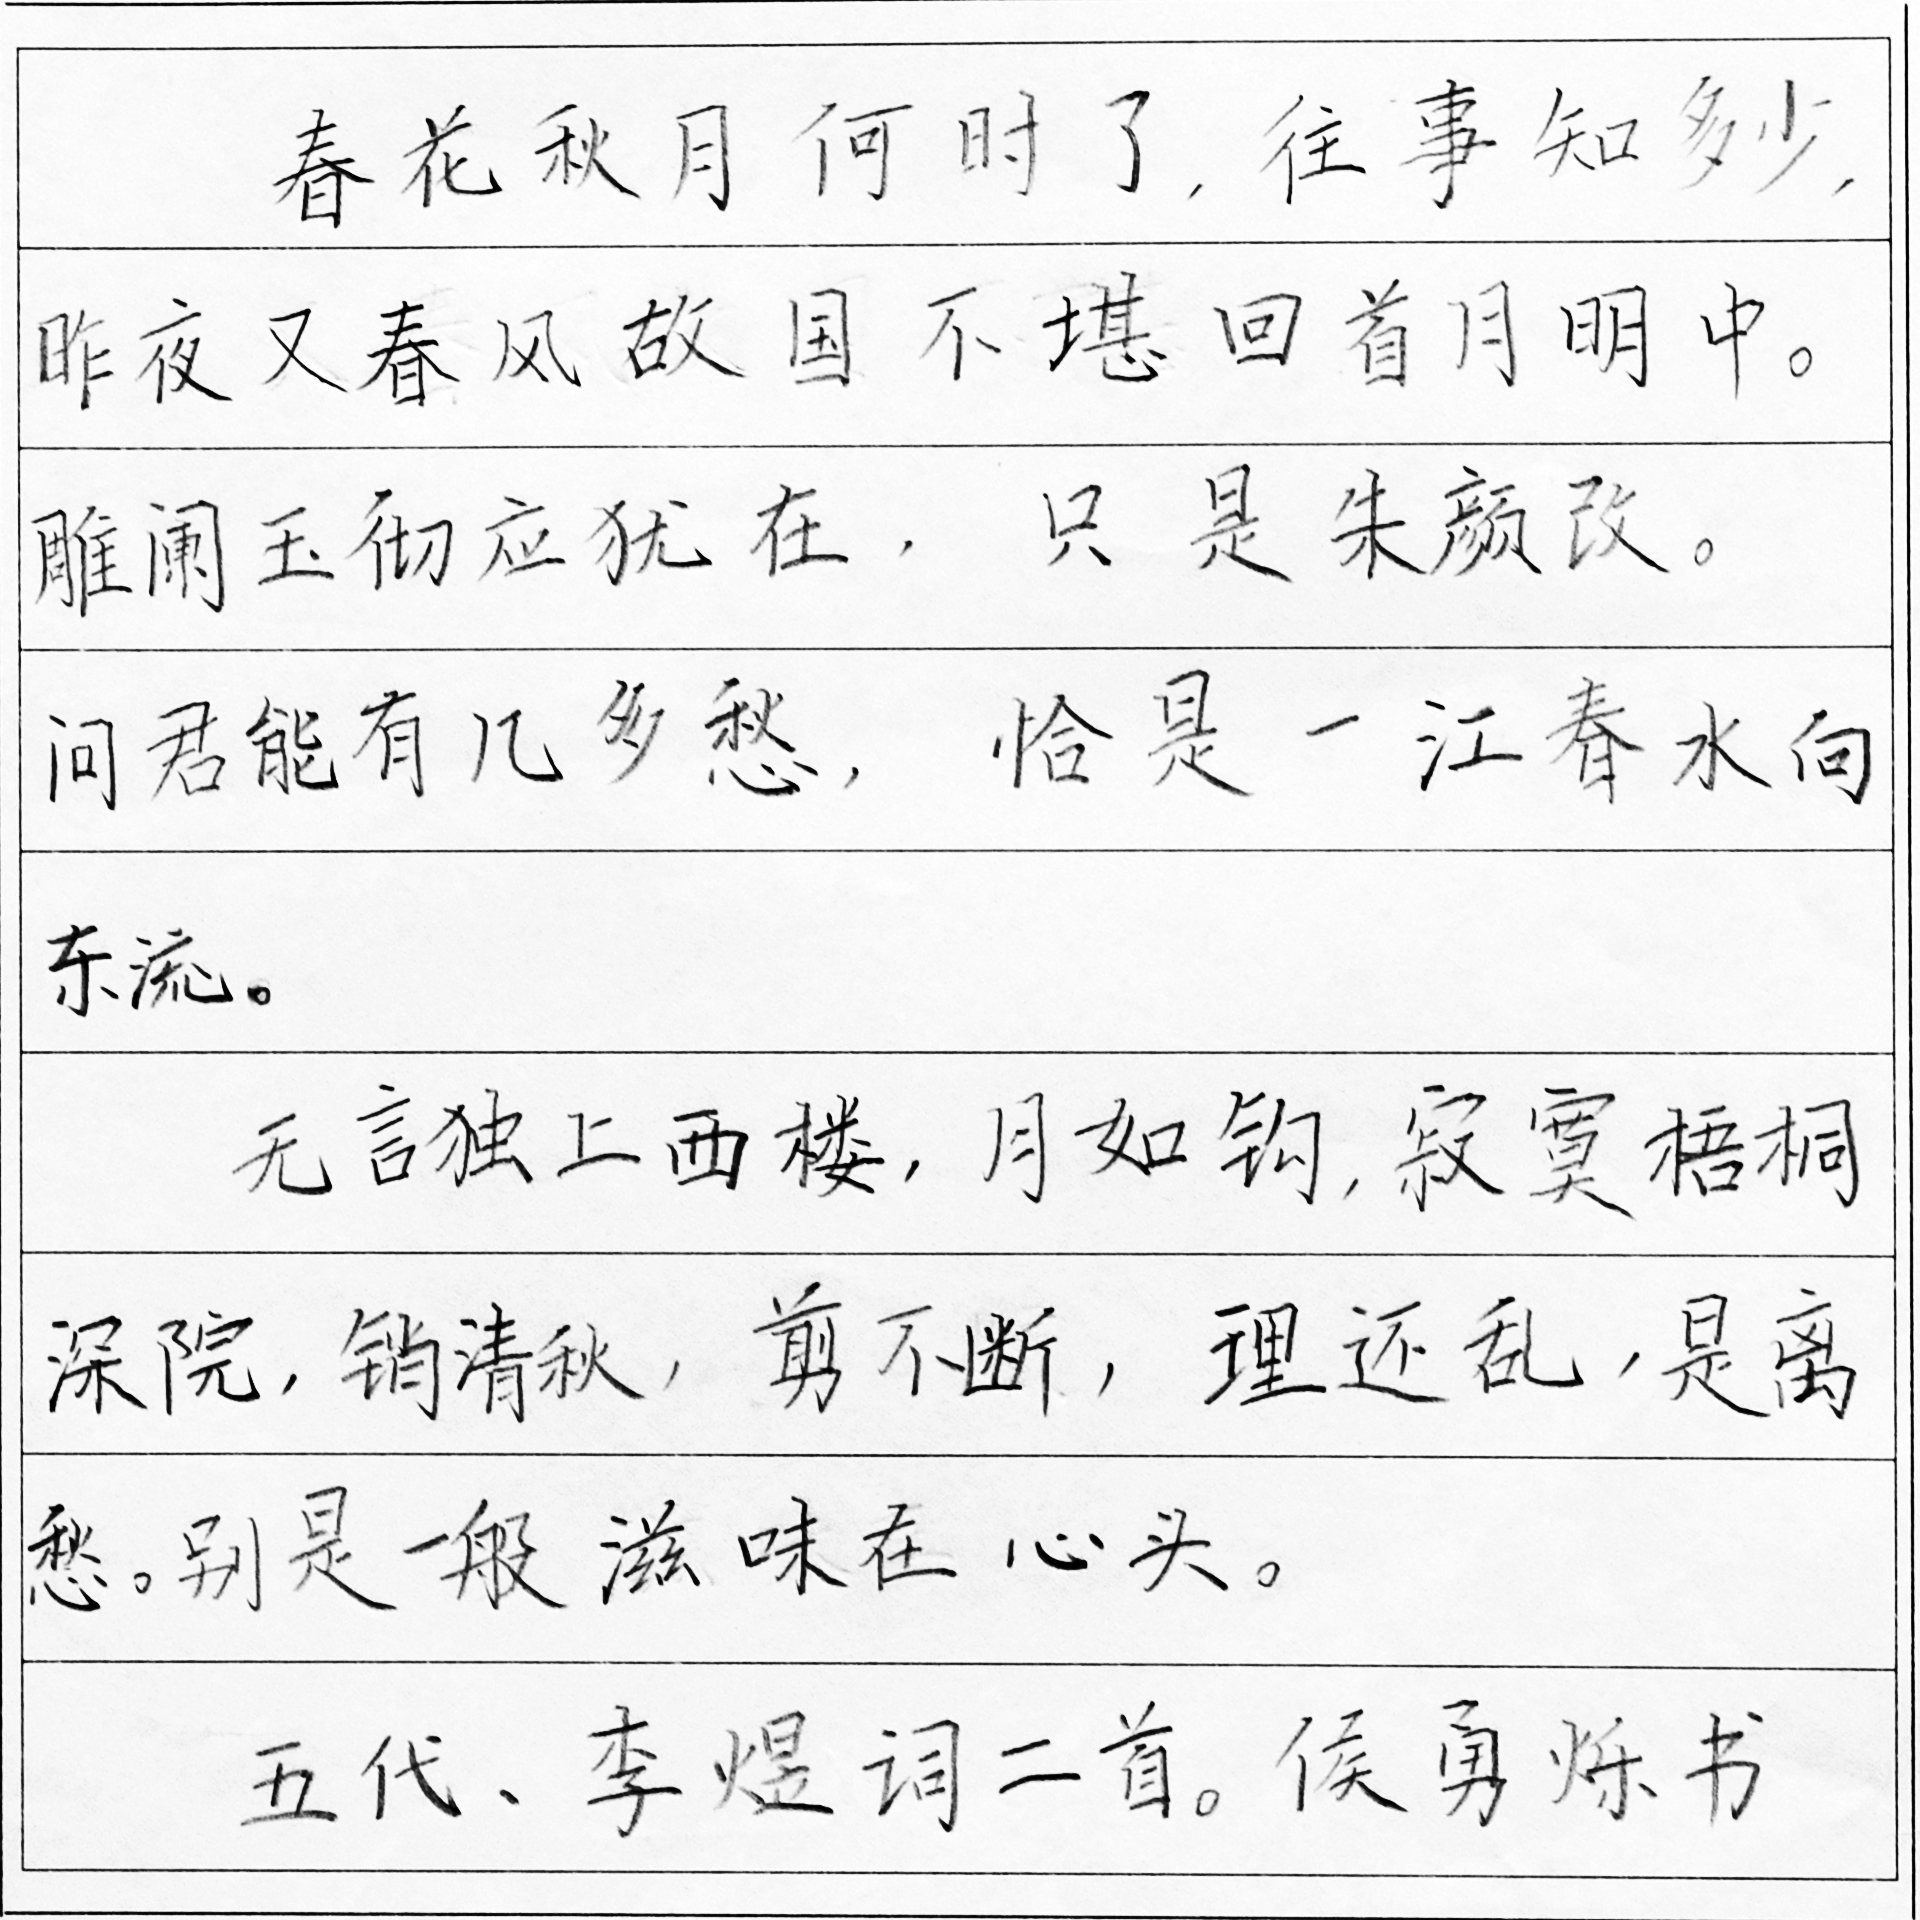 春花秋月何时了,往事知多少,
昨夜又春风故国不堪回首月明中。
雕阑玉彻应犹在,只是朱颜改。
问君能有几多愁,恰是一江春水向
东流。
无言独上西楼,月如钩,寂寞梧桐
深院,销清秋,剪不断,理还乱,是离
愁。别是一般滋味在心头。
五代、李煜词二首。侯勇烁书